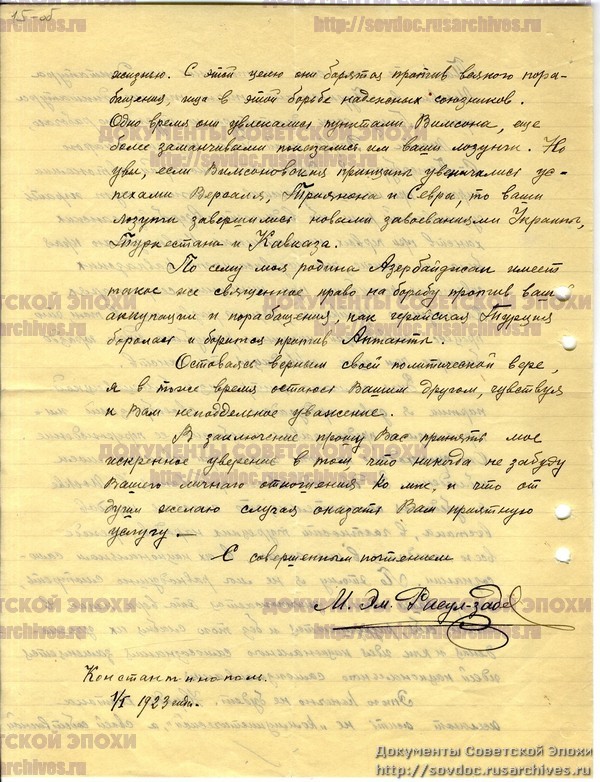 15-об
жизнью. С этой целью они борятся против всякого пора-
бащения, ища в этой борьбе надежных союзников.
Одно время они увлекались пунктами Вильсона, еще
более заманчивыми показались им ваши лозунги. Но
увы, если Вильсоновские принципы увенчались ус-
пехами Версаля, Трианона и Севра, то ваши
лозунги завершились новыми завоеваниями Украины,
Туркестана и Кавказа.
По сему моя родина Азербайджан имеет
такое же священное право на борьбу против вашей
аккупации и порабащения, как геройская Турция
боролась и борится против Антанты.
Оставаясь верным своей политической вере,
я в тоже время остаюсь Вашим другом, чувствуя
к Вам неподдельное уважение.
В заключение прошу Вас принять мое
искренное уверение в том, что никогда не забуду
Вашего личнаго отношения ко мне, и что от
души желаю случая оказать Вам приятную
услугу.—
С совершенным почтением
М. Эм. Расул-заде
Константинополь.
1923 года.
ДОКУМЕНТЫ СОВЕТСКОЙ ЭПОХИ
http://sovdoc.rusarchives.ru
Документы Советской Эпохи
http://sovdoc.rusarchives.ru